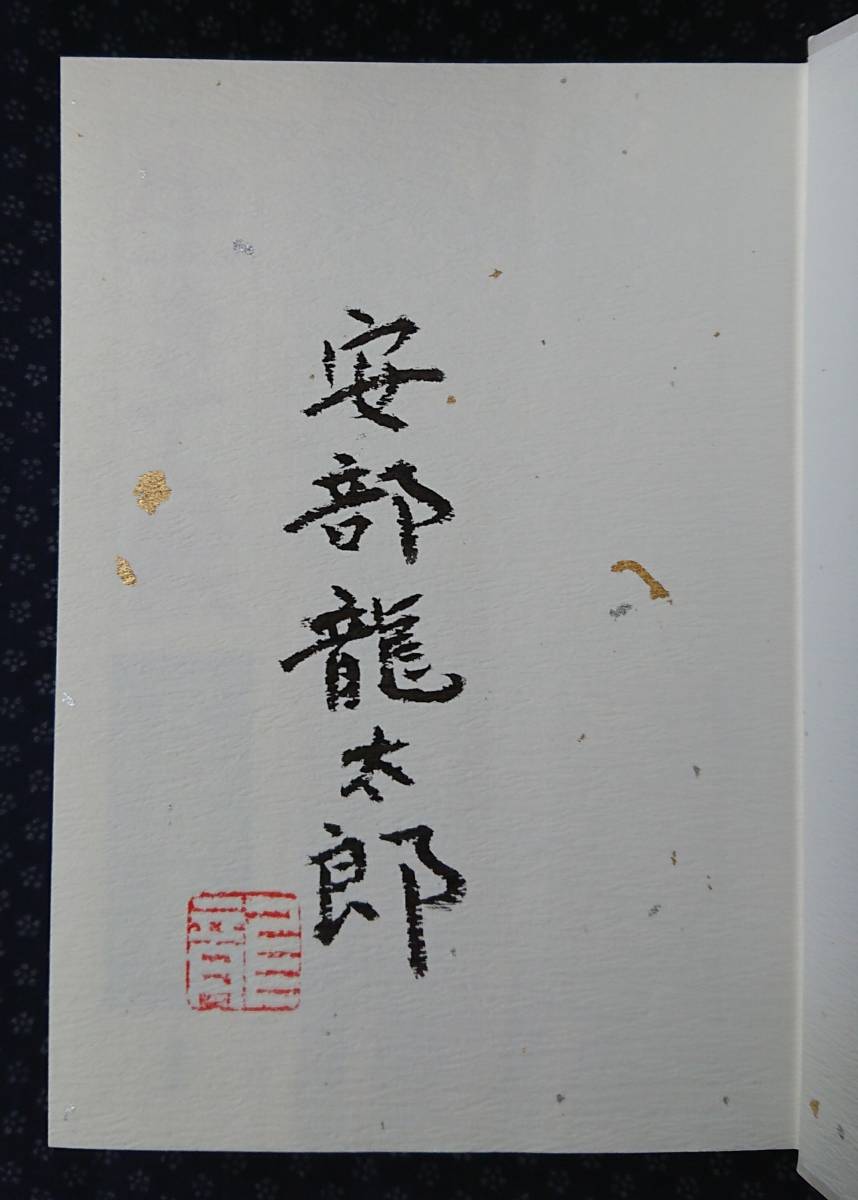 安部龍太郎